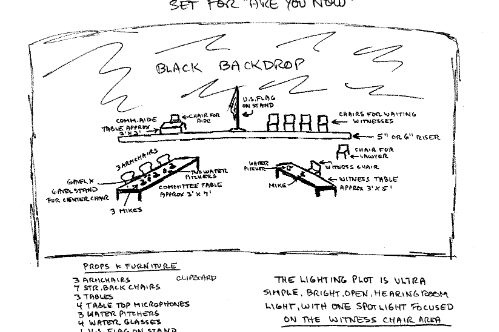 SET FOR "ARE YOU NOW"
BLACK BACKDROP
COMM. AIDE
TABLE APPROX
2' X 3'
CHAIR FOR
AIDE
U.S. FLAG
ON STAND
CHAIRS FOR WAITING
WITNESSES
5" OR 6" RISER
3 ARMCHAIRS
WATER
PITCHERS
GAVEL &
GAVEL STAND
FOR CENTER CHAIR
3 MIKES
COMMITTEE TABLE
APPROX 3' X 7'
WATER
PITCHER
MIKE
CHAIR FOR
LAWYER
WITNESS CHAIR
WITNESS TABLE
APPROX 3' X 5'
PROPS & FURNITURE
3 ARMCHAIRS
7 STR. BACK CHAIRS
3 TABLES
4 TABLE TOP MICROPHONES
3 WATER PITCHERS
4 WATER GLASSES
1 U.S. FLAG ON STAND
CLIPBOARD
THE LIGHTING PLOT IS ULTRA
SIMPLE, BRIGHT, OPEN, HEARING ROOM
LIGHT, WITH ONE SPOTLIGHT FOCUSED
ON THE WITNESS CHAIR AREA